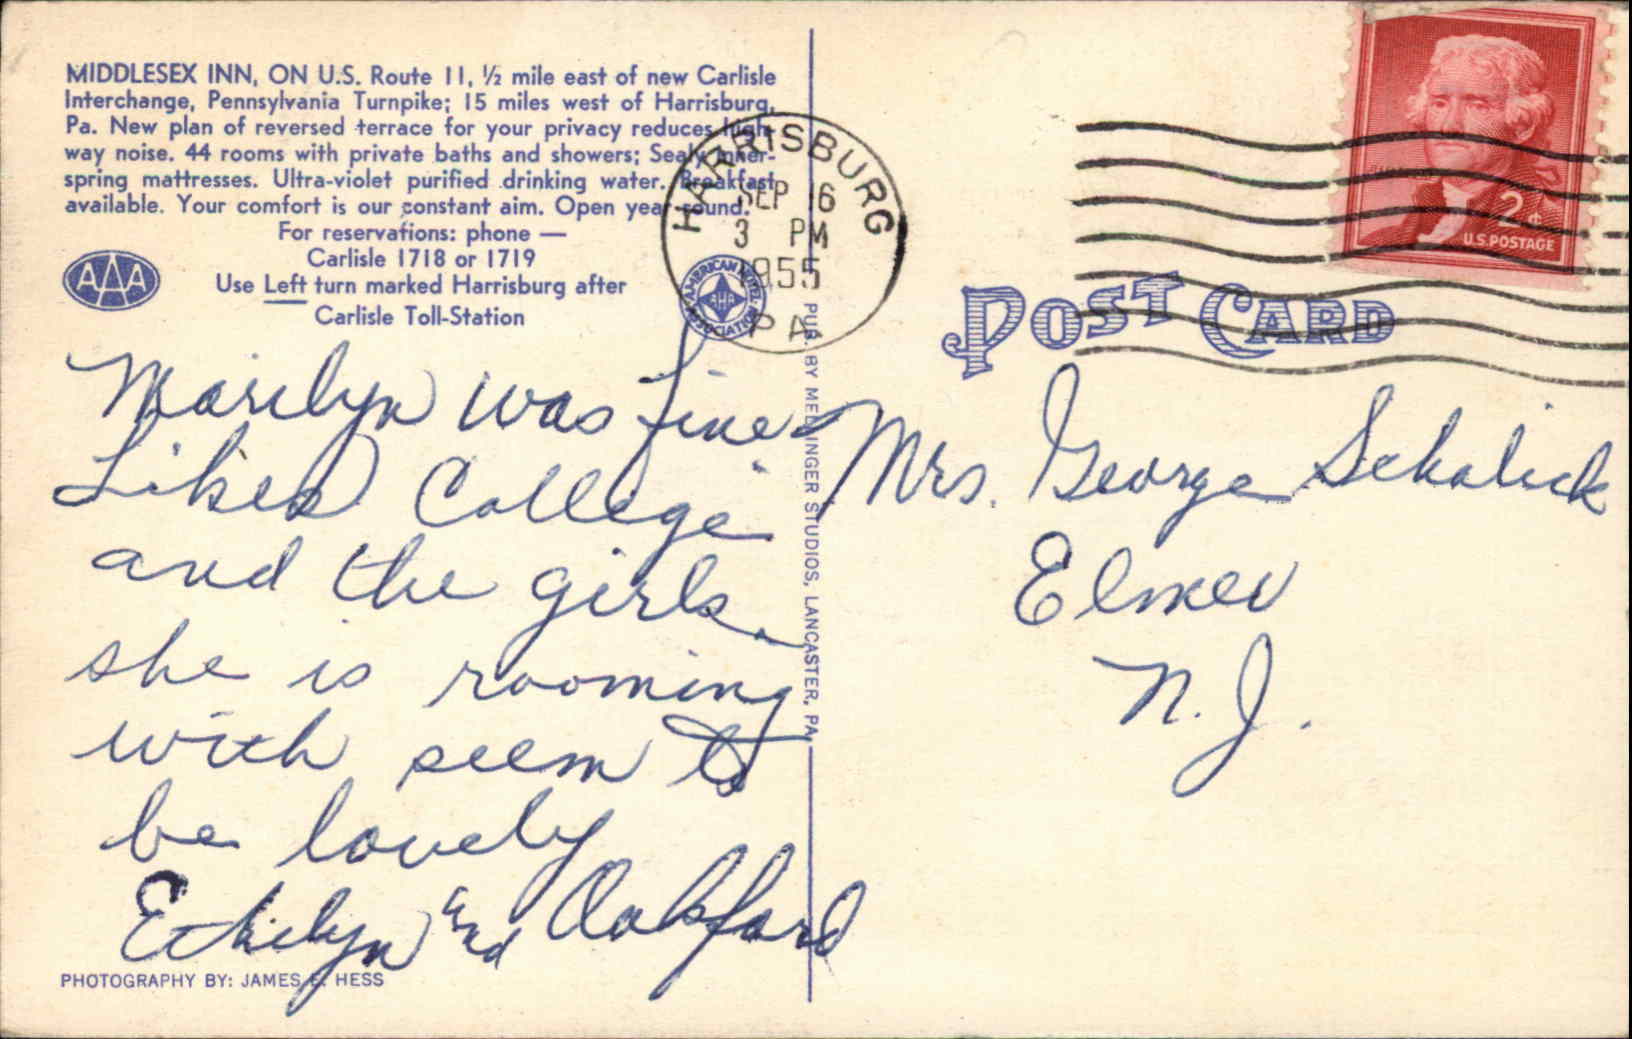 MIDDLESEX INN, ON U.S. Route 11, ½ mile east of new Carlisle
Interchange, Pennsylvania Turnpike; 15 miles west of Harrisburg,
Pa. New plan of reversed terrace for your privacy reduces high-
way noise. 44 rooms with private baths and showers; Sealy inner-
spring mattresses. Ultra-violet purified drinking water. Breakfast
available. Your comfort is our constant aim. Open year round.
For reservations: phone —
Carlisle 1718 or 1719
Use Left turn marked Harrisburg after
Carlisle Toll-Station
AAA
AMERICAN HOTEL ASSOCIATION
AHA
HARRISBURG
SEP 16
3 PM
1955
PA
2¢
U.S. POSTAGE
POST CARD
Marilyn was fine
Likes College
and the girls
she is rooming
with seem to
be lovely
Ethelyn and Oakford
PHOTOGRAPHY BY: JAMES E. HESS
PUB. BY MELLINGER STUDIOS, LANCASTER, PA.
Mrs. George Schalick
Elmer
N. J.